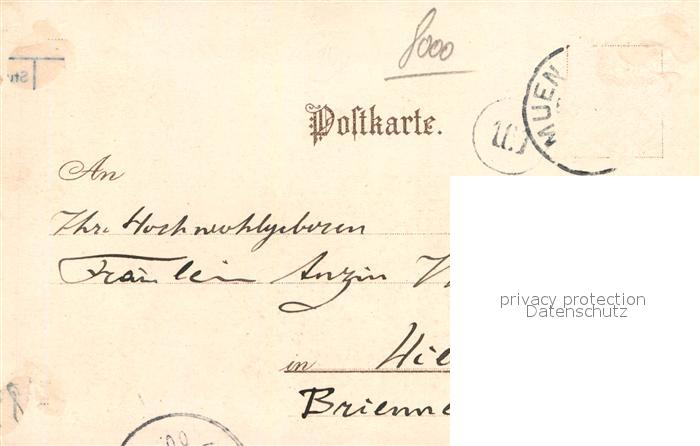 8000
Postkarte.
MUEN
An
Ihr. Hochwohlgeboren
Fräulein
in
Brienne
privacy protection
Datenschutz